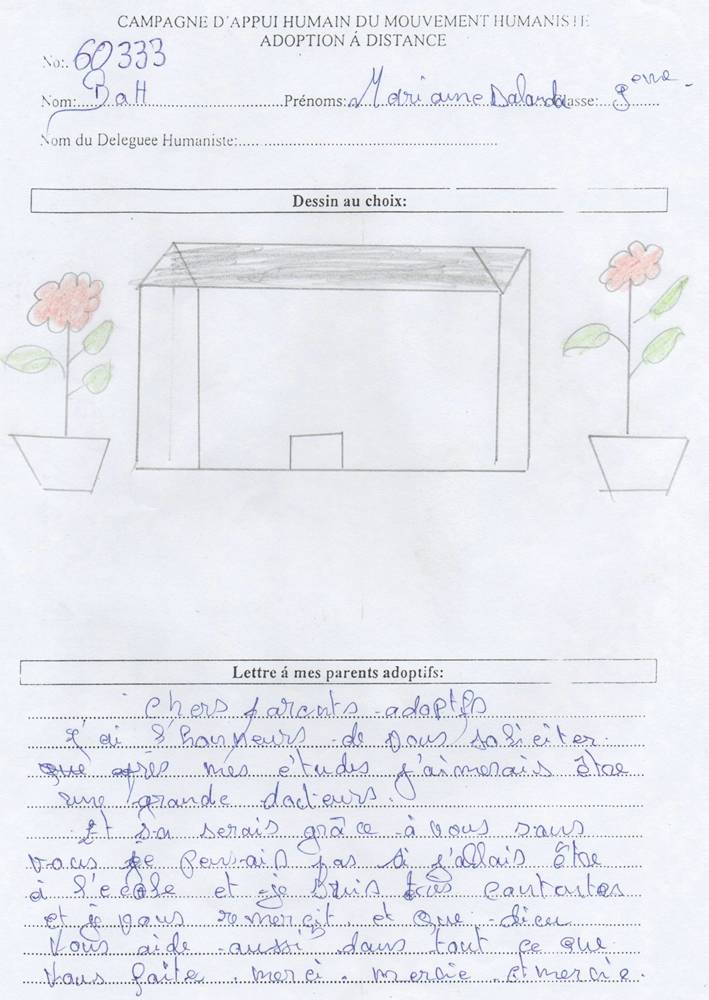 CAMPAGNE D'APPUI HUMAIN DU MOUVEMENT HUMANISTE
ADOPTION Á DISTANCE
No:. 60333
Nom: BaH Prénoms: Mariame Dalanda Classe: 9eme
Nom du Deleguee Humaniste:
Dessin au choix:
Lettre á mes parents adoptifs:
Chers parents adoptifs
J'ai l'honneurs de vous soliciter
que après mes études j'aimerais être
une grande docteurs.
Et sa serais grâce à vous sans
vous je pensais pas si j'allais être
à l'ecole et je suis très contantes
et je vous remercit et que dieu
vous aide aussi dans tout ce que
vous faite. merci. mercie. et mercie.